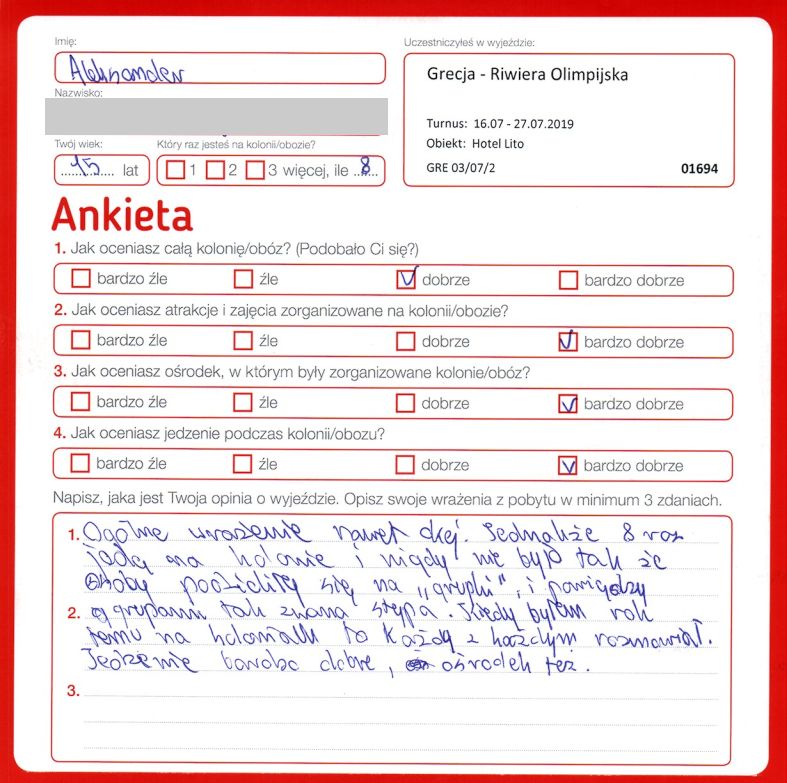 Imię:
Aleksander
Uczestniczyłeś w wyjeździe:
Grecja - Riwiera Olimpijska
Turnus: 16.07 - 27.07.2019
Obiekt: Hotel Lito
GRE 03/07/2
01694
Nazwisko:
Twój wiek:
15 lat
Który raz jesteś na kolonii/obozie?
1 2 3 więcej, ile 8
Ankieta
1. Jak oceniasz całą kolonię/obóz? (Podobało Ci się?)
bardzo źle źle dobrze bardzo dobrze
2. Jak oceniasz atrakcje i zajęcia zorganizowane na kolonii/obozie?
bardzo źle źle dobrze bardzo dobrze
3. Jak oceniasz ośrodek, w którym były zorganizowane kolonie/obóz?
bardzo źle źle dobrze bardzo dobrze
4. Jak oceniasz jedzenie podczas kolonii/obozu?
bardzo źle źle dobrze bardzo dobrze
Napisz, jaka jest Twoja opinia o wyjeździe. Opisz swoje wrażenia z pobytu w minimum 3 zdaniach.
1. Ogólne wrażenie nawet okej. Jednakże 8 raz
jadę na kolonie i nigdy nie było tak że
osoby podzieliły się na „grupki", i pomiędzy
2. grupami tak zwana stypa. Kiedy byłem rok
temu na koloniach to każdy z każdym rozmawiał.
Jedzenie bardzo dobre, ośrodek też.
3.